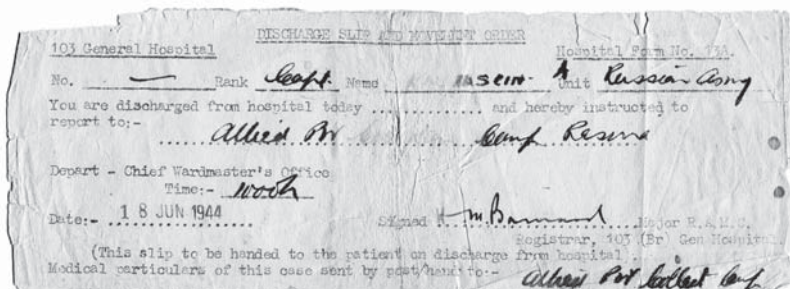 DISCHARGE SLIP AND MOVEMENT ORDER
103 General Hospital Hospital Form No. 13A.
No. — Rank Capt. Name Unit Russian Army
You are discharged from hospital today ............ and hereby instructed to
report to:-
Allied PW Camp Resina
Depart - Chief Wardmaster's Office
Time:- 1100h
Date:- 18 JUN 1944 Signed Major R.A.M.C.
Registrar, 103 (Br) Gen Hospital.
(This slip to be handed to the patient on discharge from hospital.
Medical particulars of this case sent by post/hand to:-
Allied PW Collect Camp